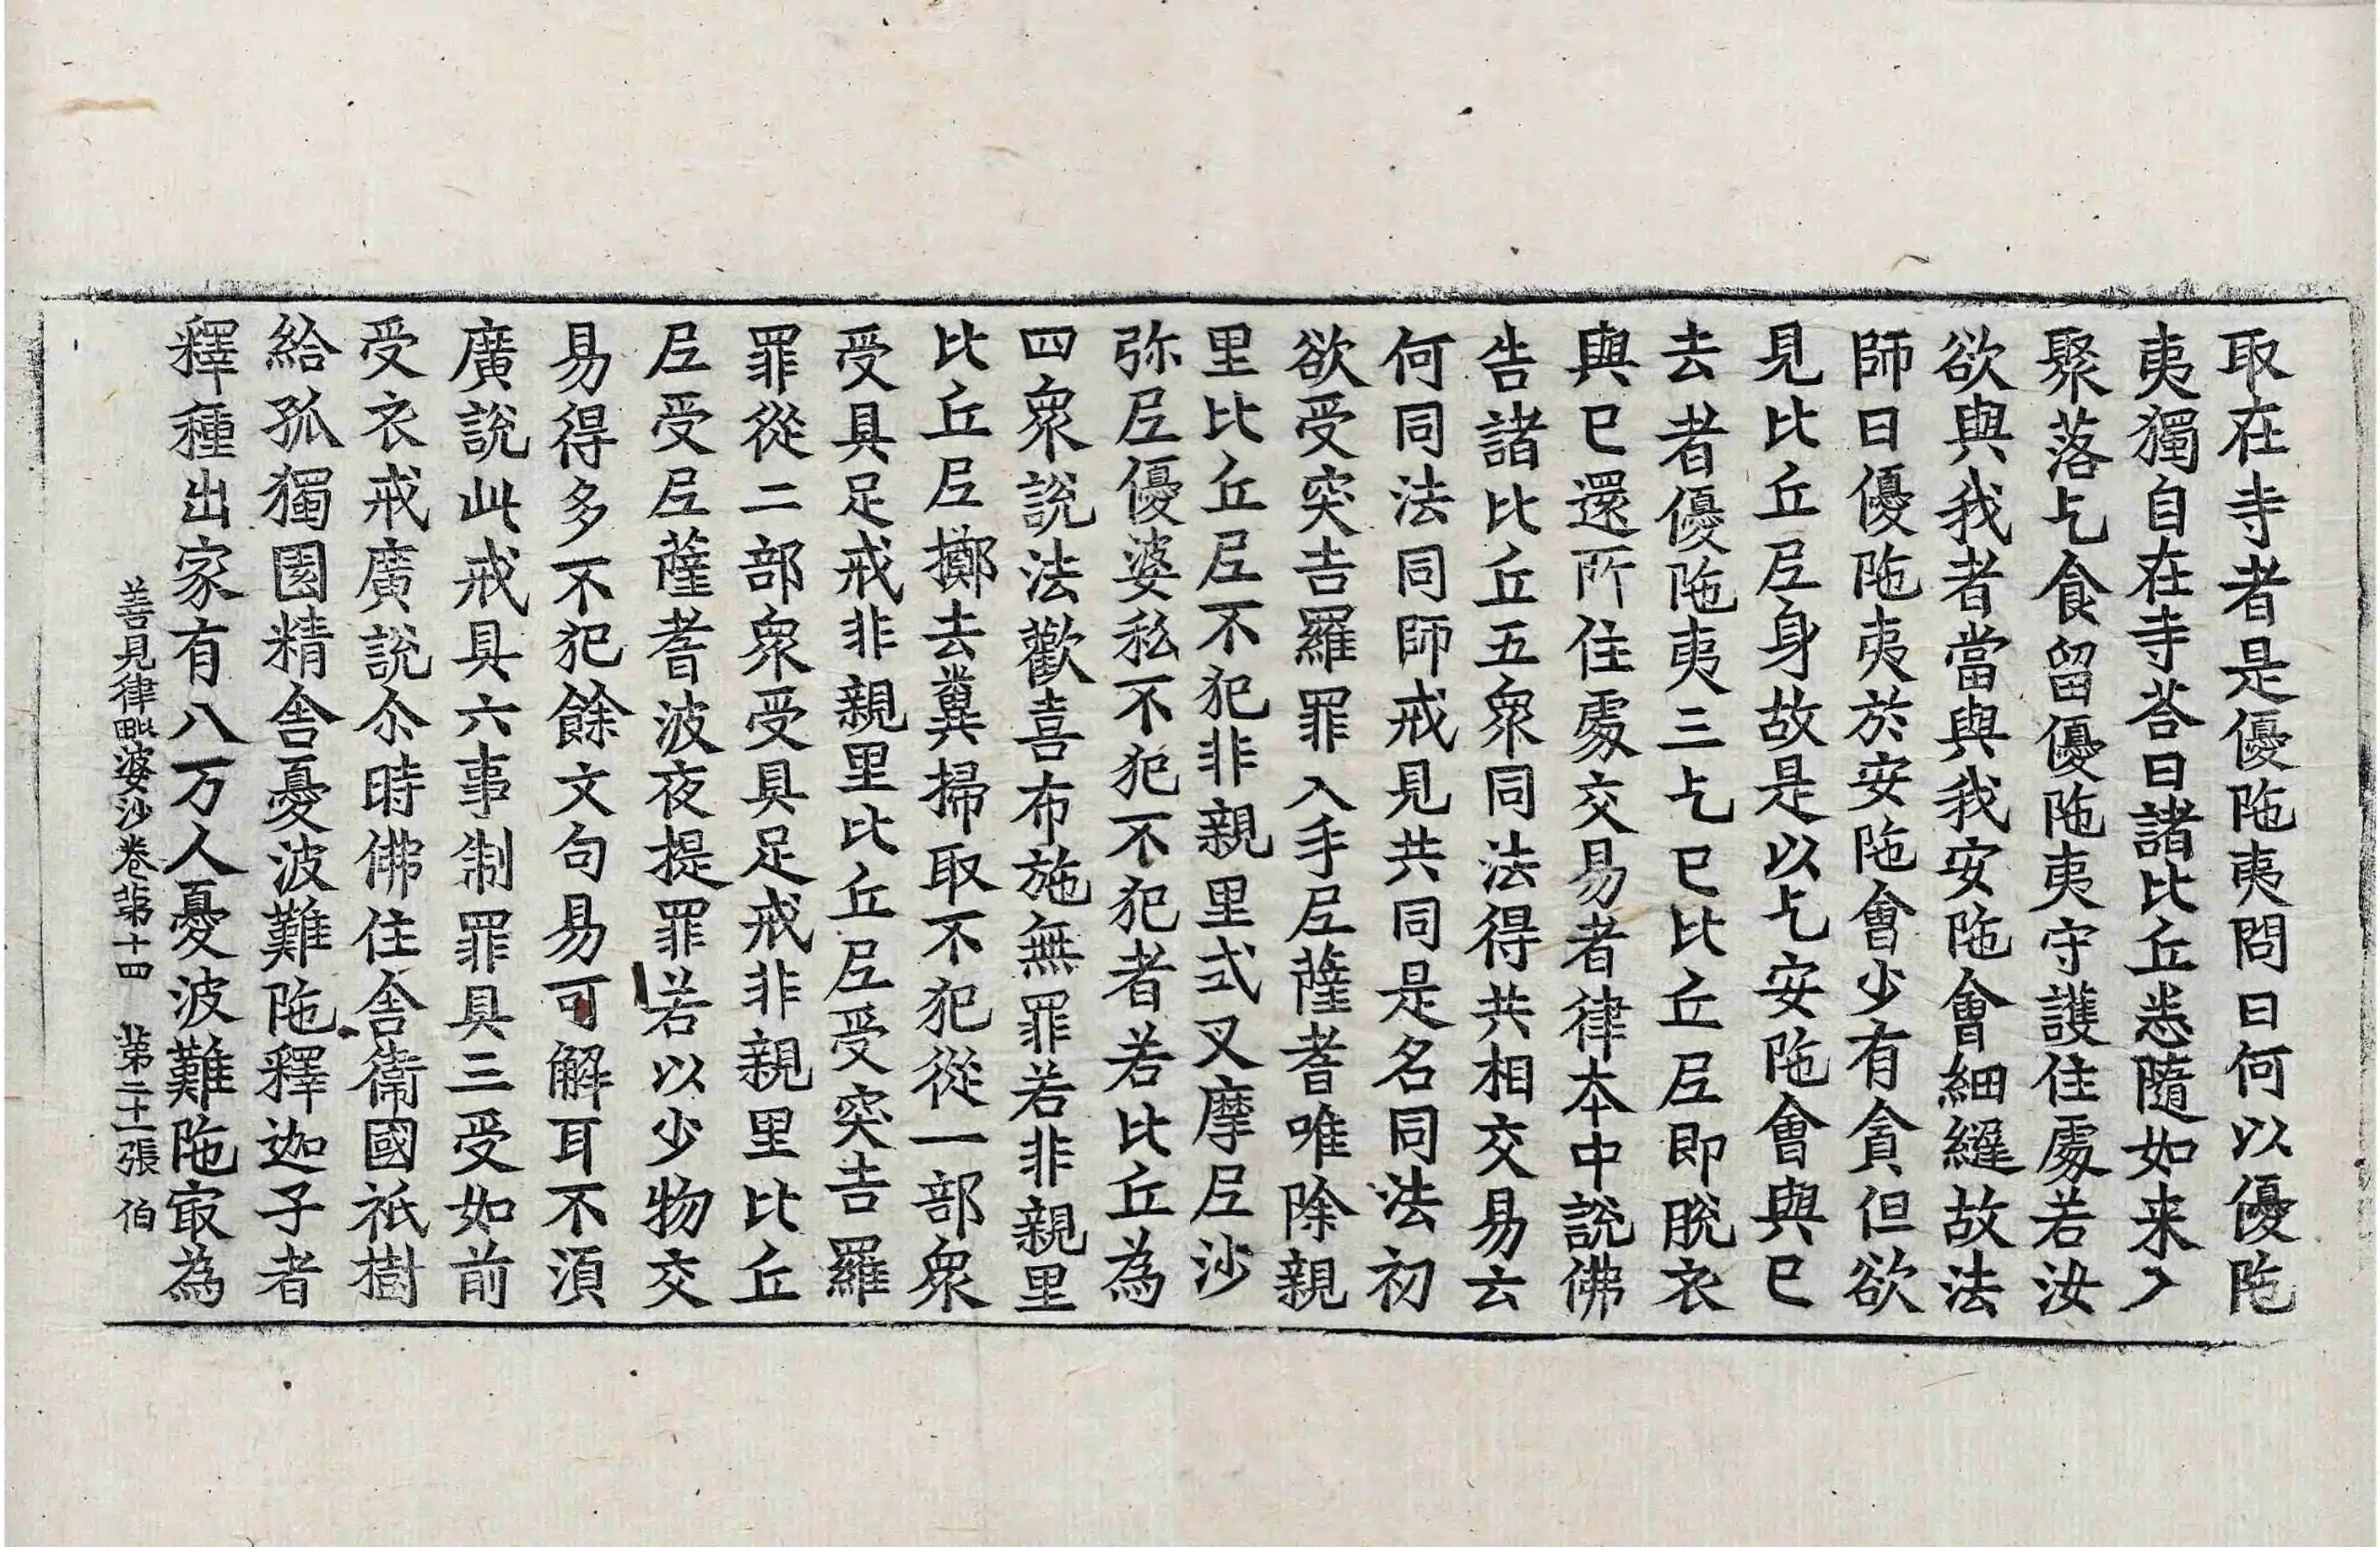 取在寺者是優陁夷問曰何以優陁
夷獨自在寺荅曰諸比丘悉隨如来入
聚落乞食留優陁夷守護住處若汝
欲與我者當與我安陁會細縫故法
師曰優陁夷於安陁會少有貪但欲
見比丘尼身故是以乞安陁會與已
去者優陁夷三乞已比丘尼即脫衣
與已還所住處交易者律本中說佛
告諸比丘五衆同法得共相交易云
何同法同師戒見共同是名同法初
欲受突吉羅罪入手尼薩耆唯除親
里比丘尼不犯非親里式叉摩尼沙
弥尼優婆私不犯不犯者若比丘為
四衆說法歡喜布施無罪若非親里
比丘尼擲去糞掃取不犯從一部衆
受具足戒非親里比丘尼受突吉羅
罪從二部衆受具足戒非親里比丘
尼受尼薩耆波夜提罪若以少物交
易得多不犯餘文句易可解耳不湏
廣說此戒具六事制罪具三受如前
受衣戒廣說尒時佛住舍衛國祇樹
給孤獨園精舍憂波難陁釋迦子者
釋種出家有八万人憂波難陁㝡為
善見律毗婆沙卷苐十四　苐二十一張　伯